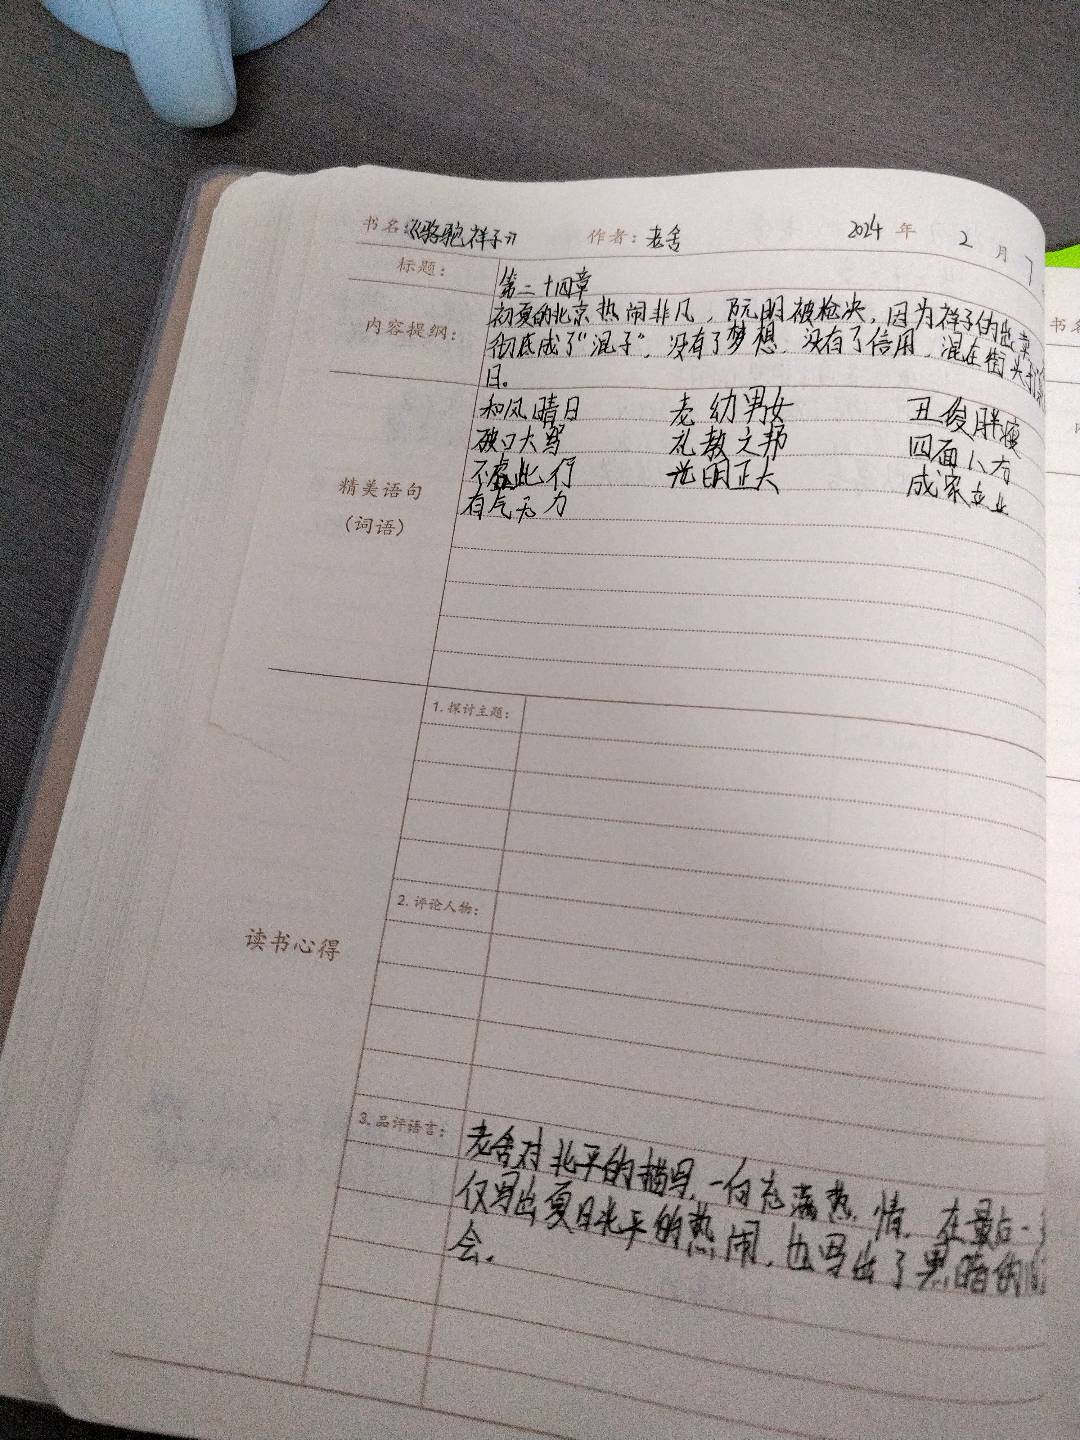 书名:《骆驼祥子》 作者:老舍 2024年2月7
标题: 第二十四章
内容提纲: 初夏的北京热闹非凡,阮明被枪决,因为祥子的出卖
彻底成了“混子”,没有了梦想,没有了信用,混在街头
日。
和风晴日 老幼男女 丑俊胖瘦
破口大骂 礼教之邦 四面八方
不虚此行 光明正大 成家立业
有气无力
精美语句
(词语)
读书心得
1.探讨主题:
2.评论人物:
3.品评语言: 老舍对北平的描写,一向充满热情,在最后一
仅写出夏日北平的热闹,也写出了黑暗的
会。
书名